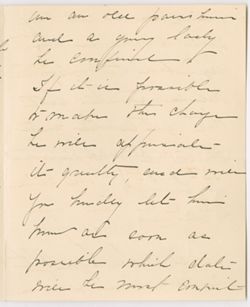 an old parishioner
and a young lady
he confirmed
If it is possible
to make this change
he will appreciate
it greatly, and will
you kindly let him
know as soon as
possible which date
will be most